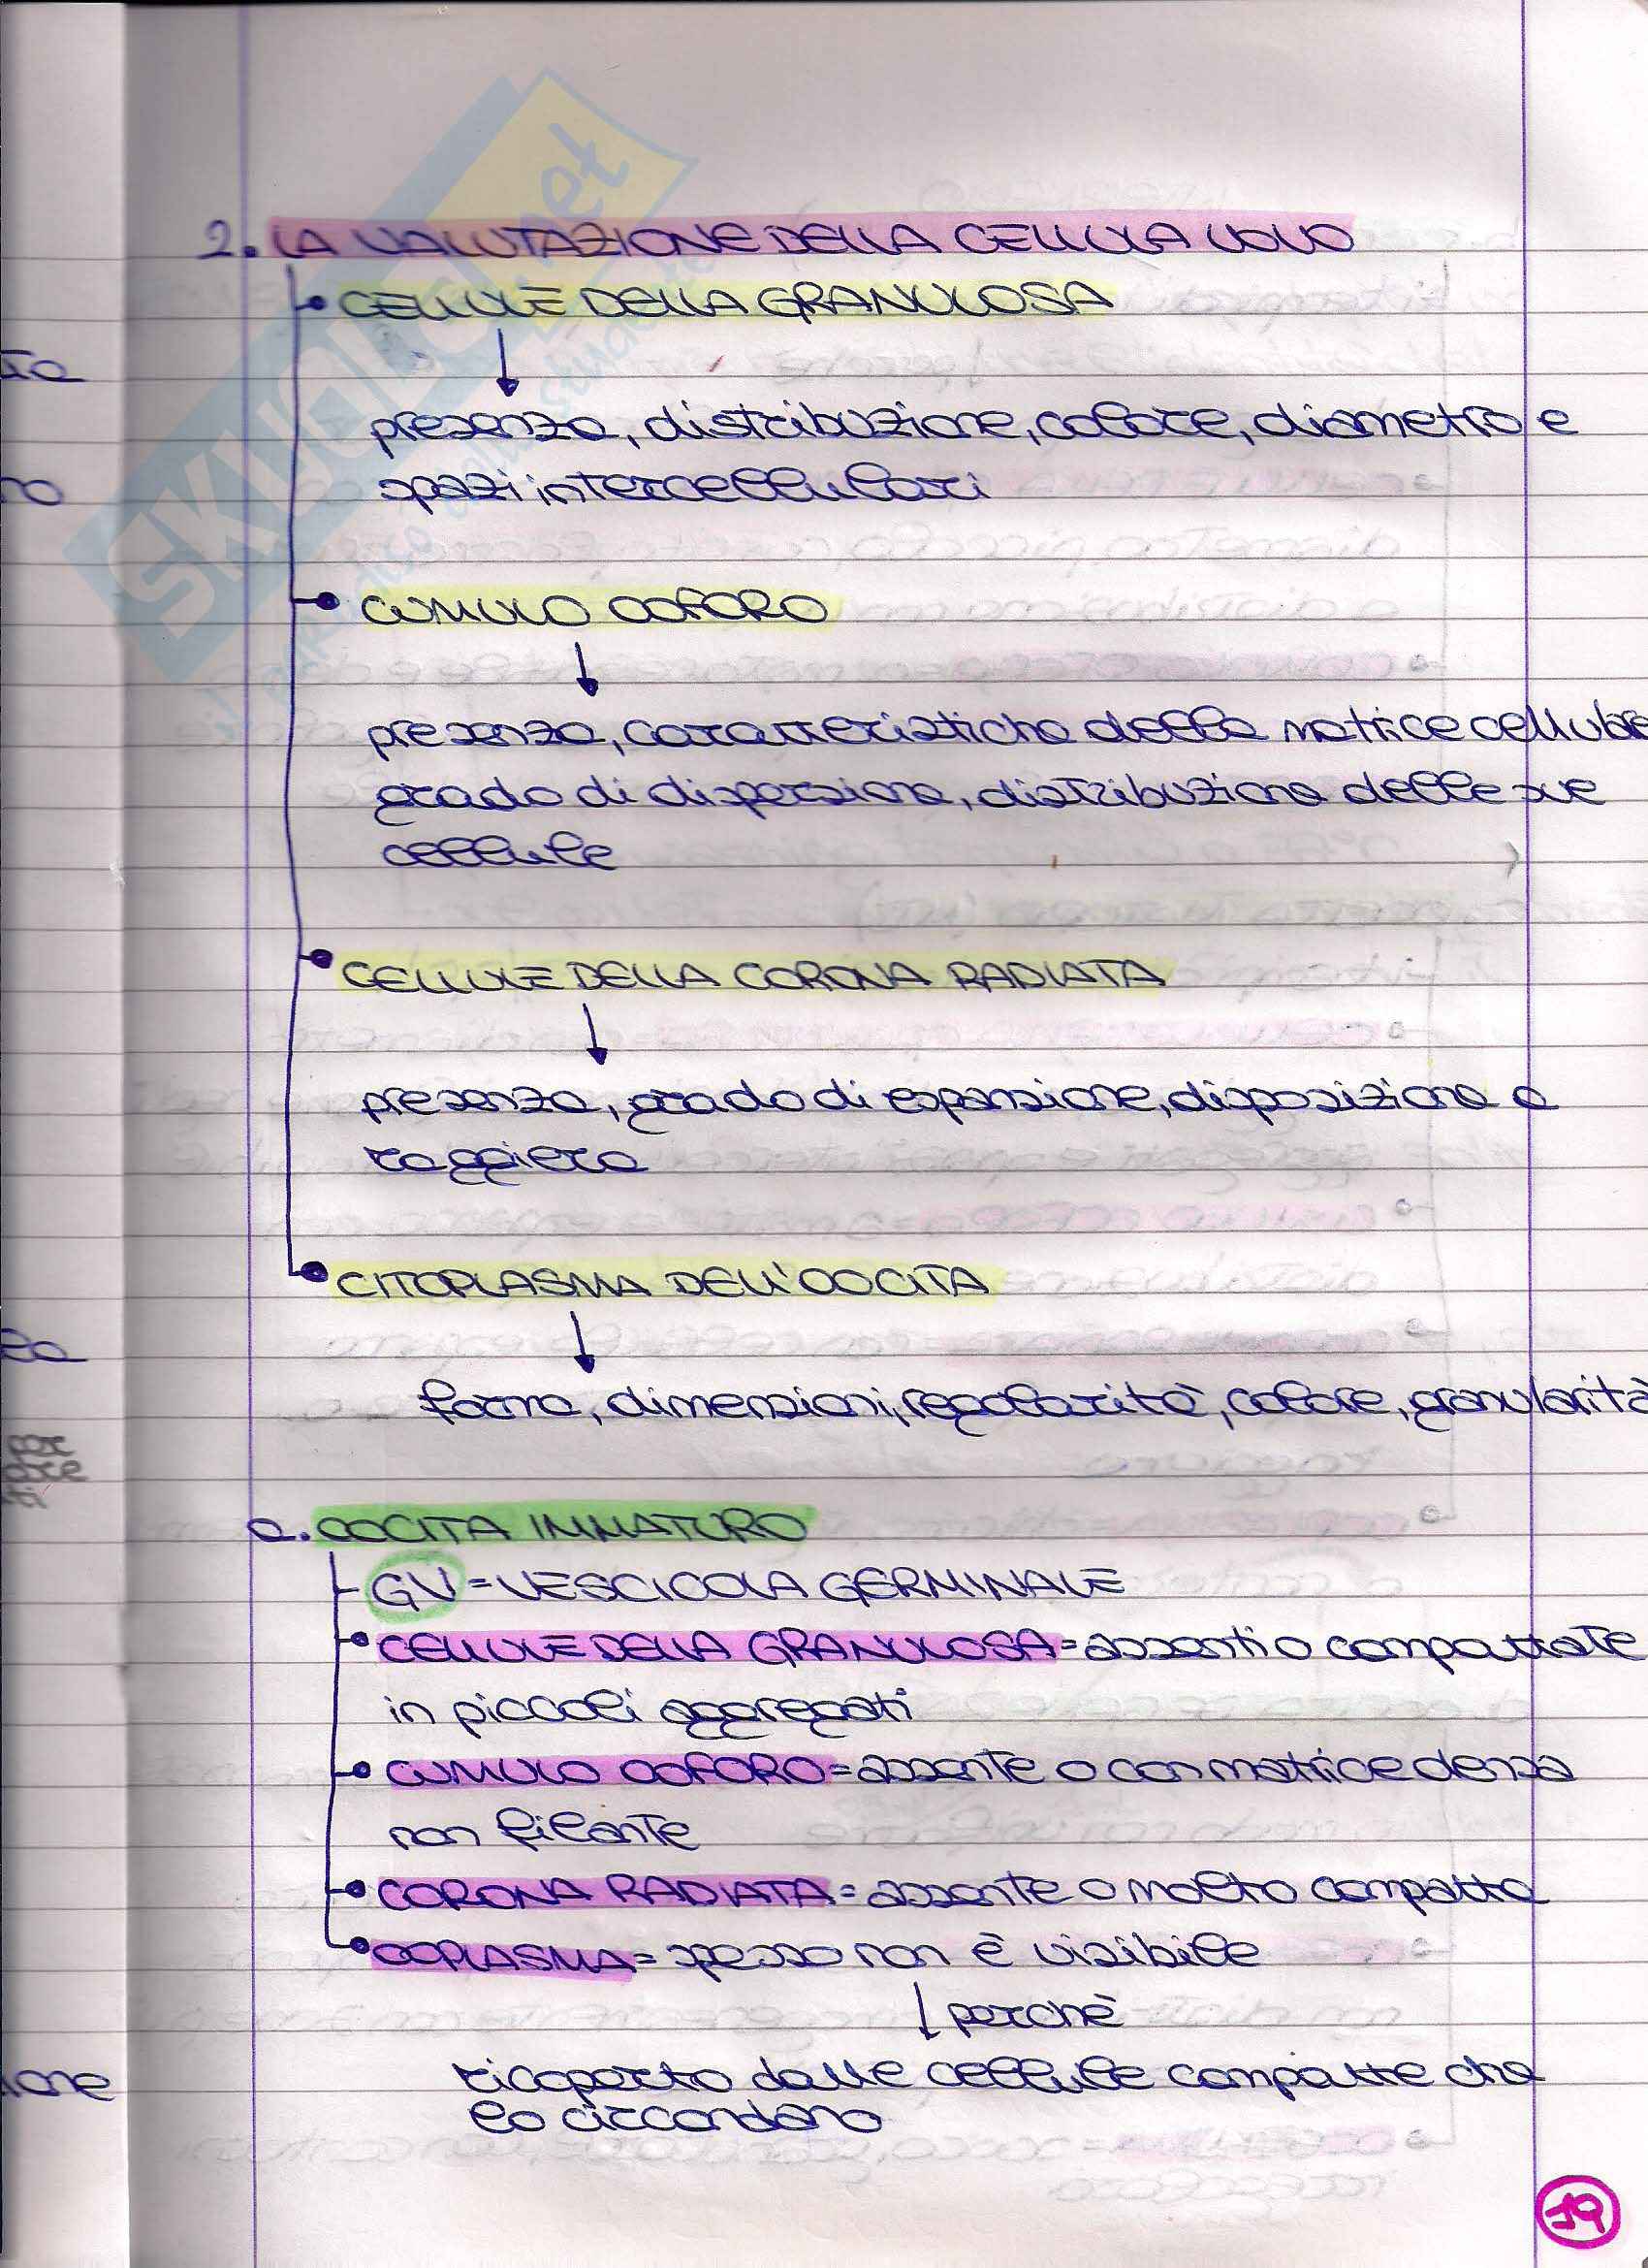 2. LA VALUTAZIONE DELLA CELLULA UOVO
• CELLULE DELLA GRANULOSA
presenza, distribuzione, colore, diametro e
spazi intercellulari
• CUMULO OOFORO
presenza, caratteristiche della matrice cellulare
grado di dispersione, distribuzione delle sue
cellule
• CELLULE DELLA CORONA RADIATA
presenza, grado di espansione, disposizione a
raggiera
• CITOPLASMA DELL'OOCITA
forma, dimensioni, regolarità, colore, granularità
a. OOCITA IMMATURO
GV = VESCICOLA GERMINALE
• CELLULE DELLA GRANULOSA = assenti o compattate
in piccoli aggregati
• CUMULO OOFORO = assente o con matrice densa
non filante
• CORONA RADIATA = assente o molto compatta
• OOPLASMA = spesso non è visibile
perchè
ricoperto dalle cellule compatte che
lo circondano
19
SKUOLA.net